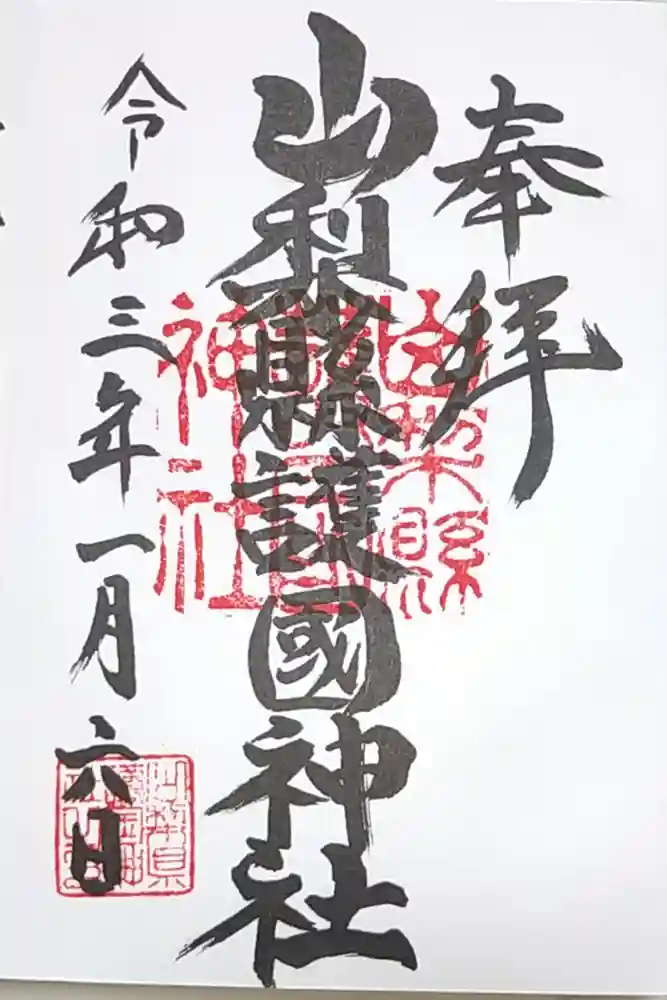 奉拝
山梨縣護國神社
山梨縣護國神社
令和三年一月六日